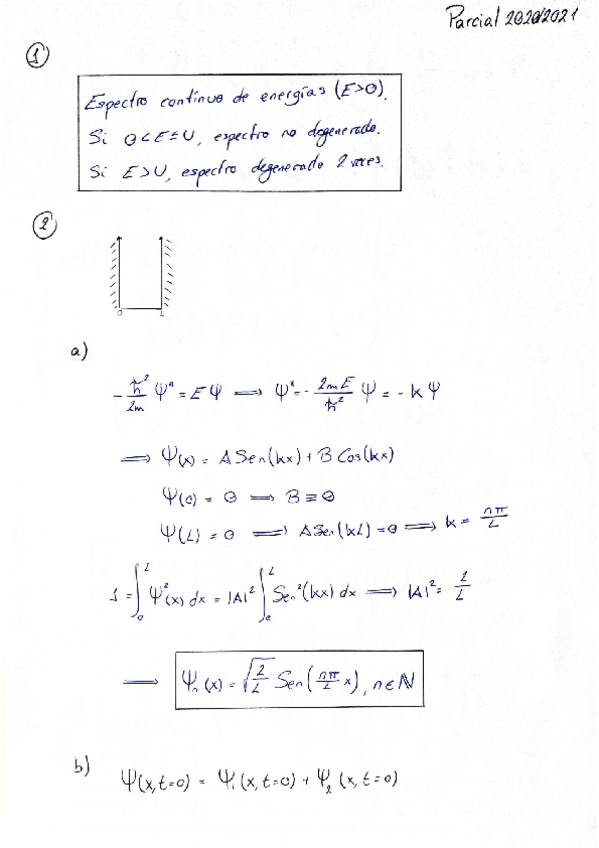 Parcial 2020/2021
①
Espectro contínuo de energías (E>0).
Si 0<E≤U, espectro no degenerado.
Si E>U, espectro degenerado 2 veces.
②
0 L
a)
-ħ²/2m Ψ'' = EΨ ⟹ Ψ'' = - 2mE/ħ² Ψ = - k Ψ
⟹ Ψ(x) = A Sen(kx) + B Cos(kx)
Ψ(0) = 0 ⟹ B ≡ 0
Ψ(L) = 0 ⟹ A Sen(kL) = 0 ⟹ k = nπ/L
1 = ∫₀ᴸ Ψ²(x) dx = |A|² ∫₀ᴸ Sen²(kx) dx ⟹ |A|² = 2/L
⟹ Ψₙ(x) = √(2/L) Sen(nπ/L x), n∈ℕ
b) Ψ(x,t=0) = Ψ₁(x,t=0) + Ψ₂(x,t=0)